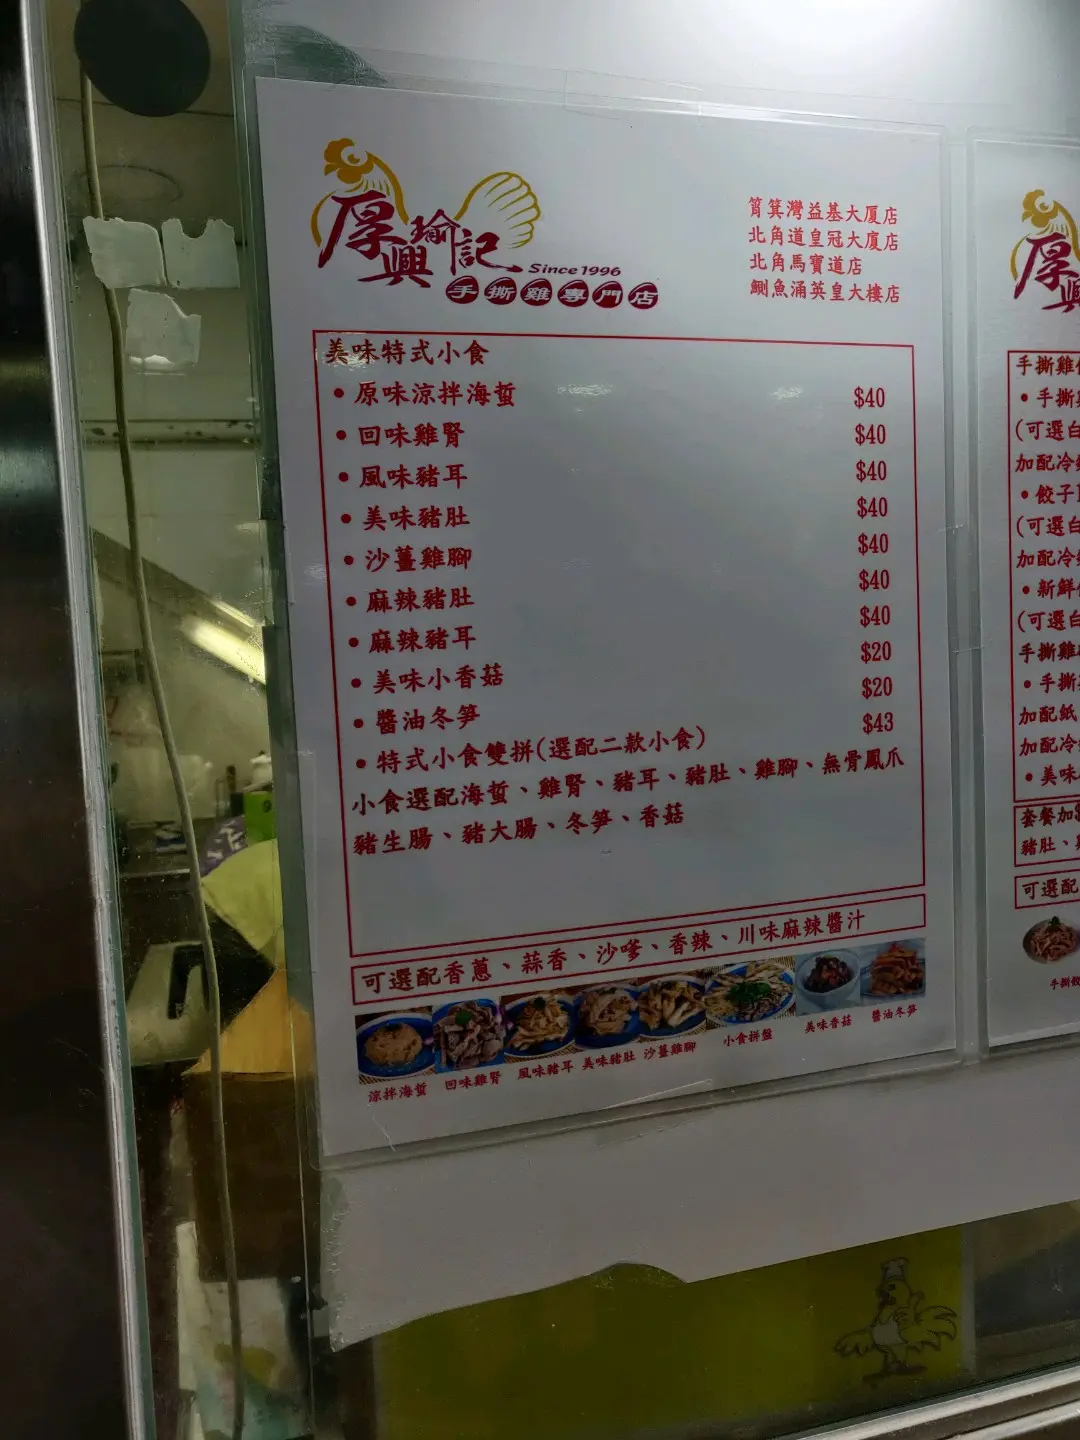 厚興瑜記
Since 1996
手撕雞專門店
筲箕灣益基大厦店
北角道皇冠大廈店
北角馬寶道店
鰂魚涌英皇大樓店
美味特式小食
• 原味涼拌海蜇 $40
• 回味雞腎 $40
• 風味豬耳 $40
• 美味豬肚 $40
• 沙薑雞腳 $40
• 麻辣豬肚 $40
• 麻辣豬耳 $40
• 美味小香菇 $20
• 醬油冬笋 $20
• 特式小食雙拼(選配二款小食) $43
小食選配海蜇、雞腎、豬耳、豬肚、雞腳、無骨鳳爪
豬生腸、豬大腸、冬笋、香菇
可選配香蔥、蒜香、沙嗲、香辣、川味麻辣醬汁
涼拌海蜇 回味雞腎 風味豬耳 美味豬肚 沙薑雞腳 小食拼盤 美味香菇 醬油冬笋
厚
手撕雞
• 手撕
(可選白
加配冷
• 餃子
(可選白
加配冷
• 新鮮
(可選白
手撕雞
• 手撕
加配紙
加配冷
• 美味
套餐加
豬肚、
可選配